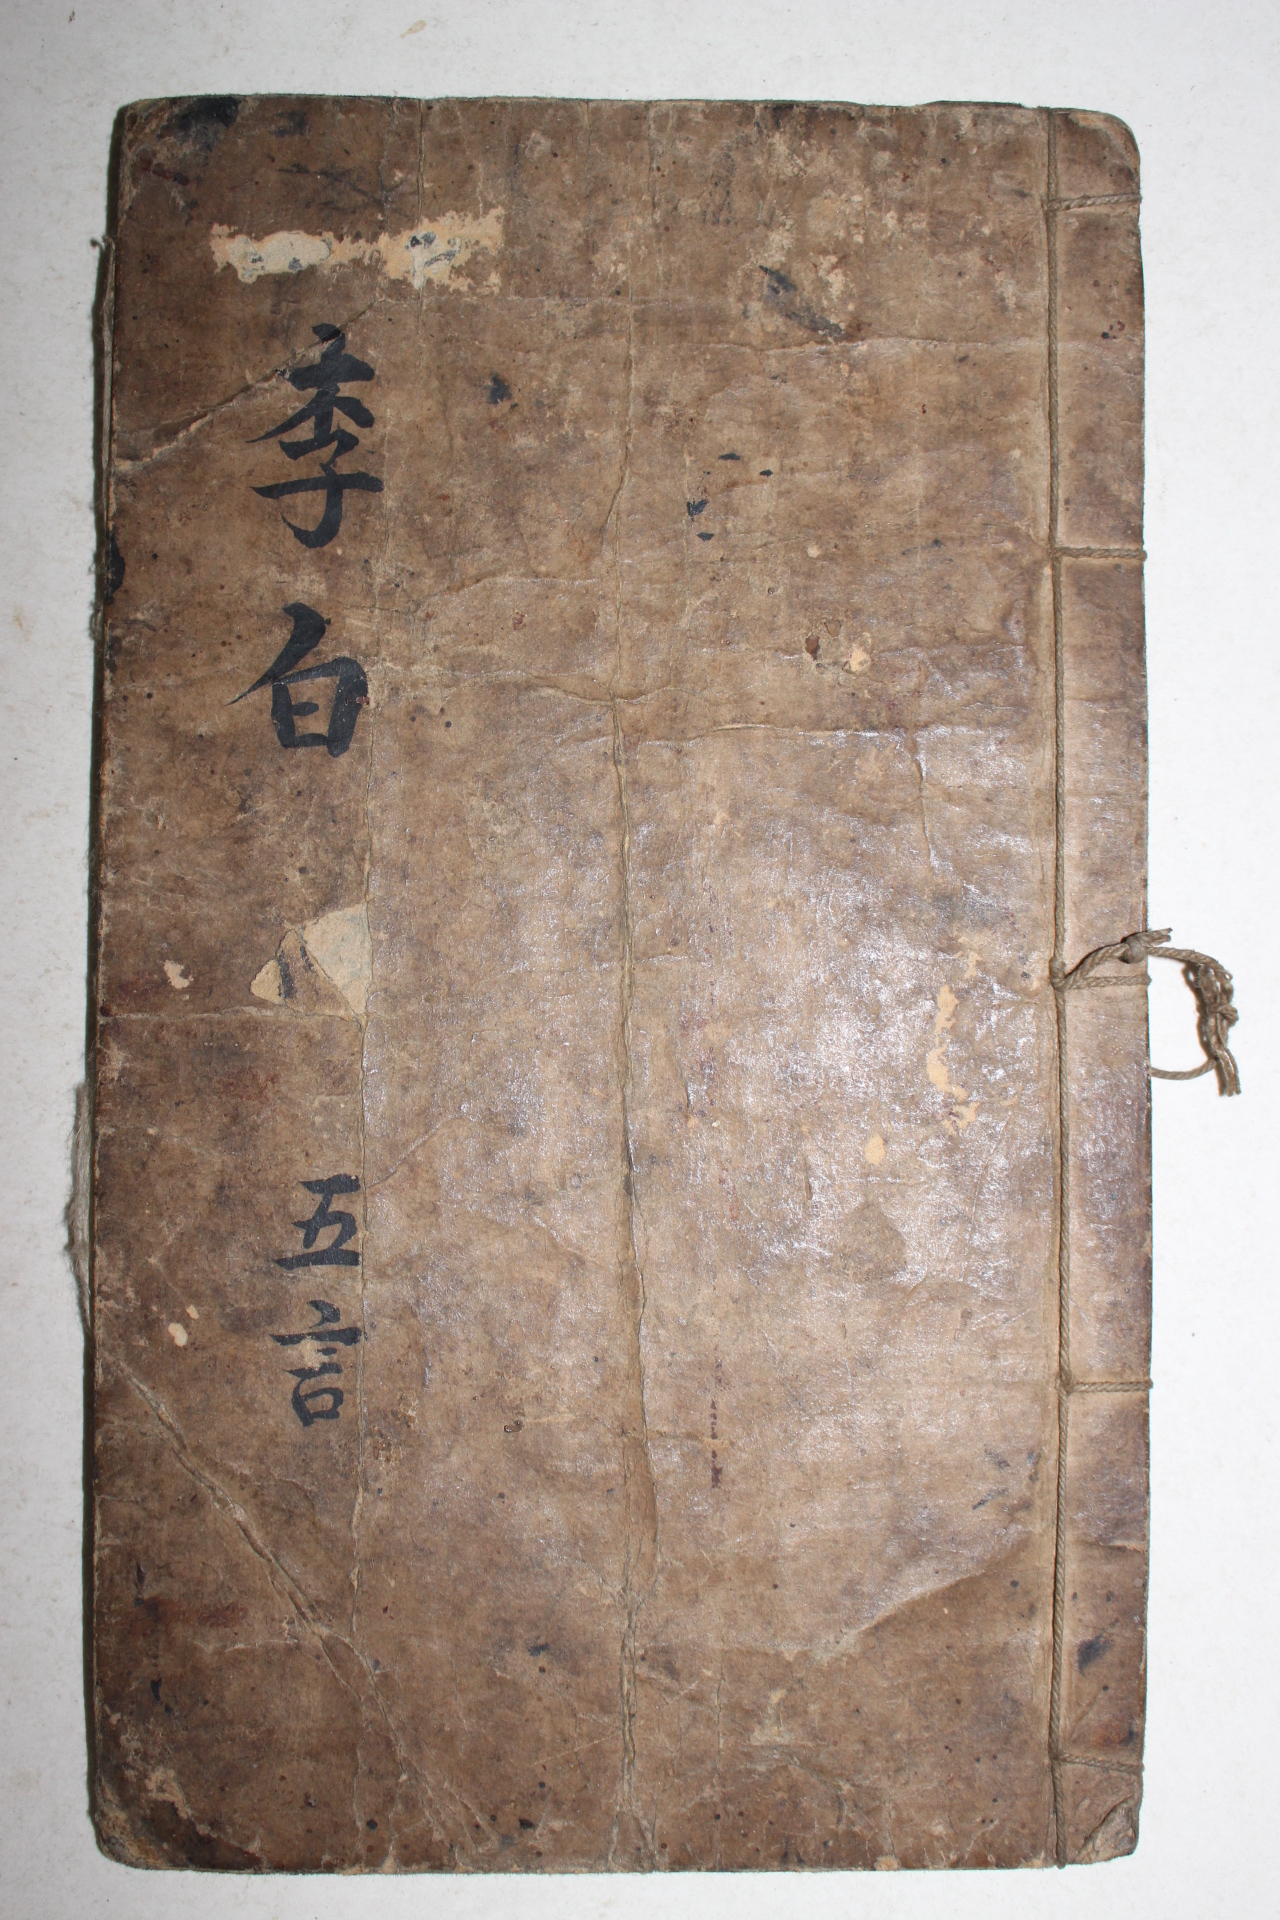 李白 五言